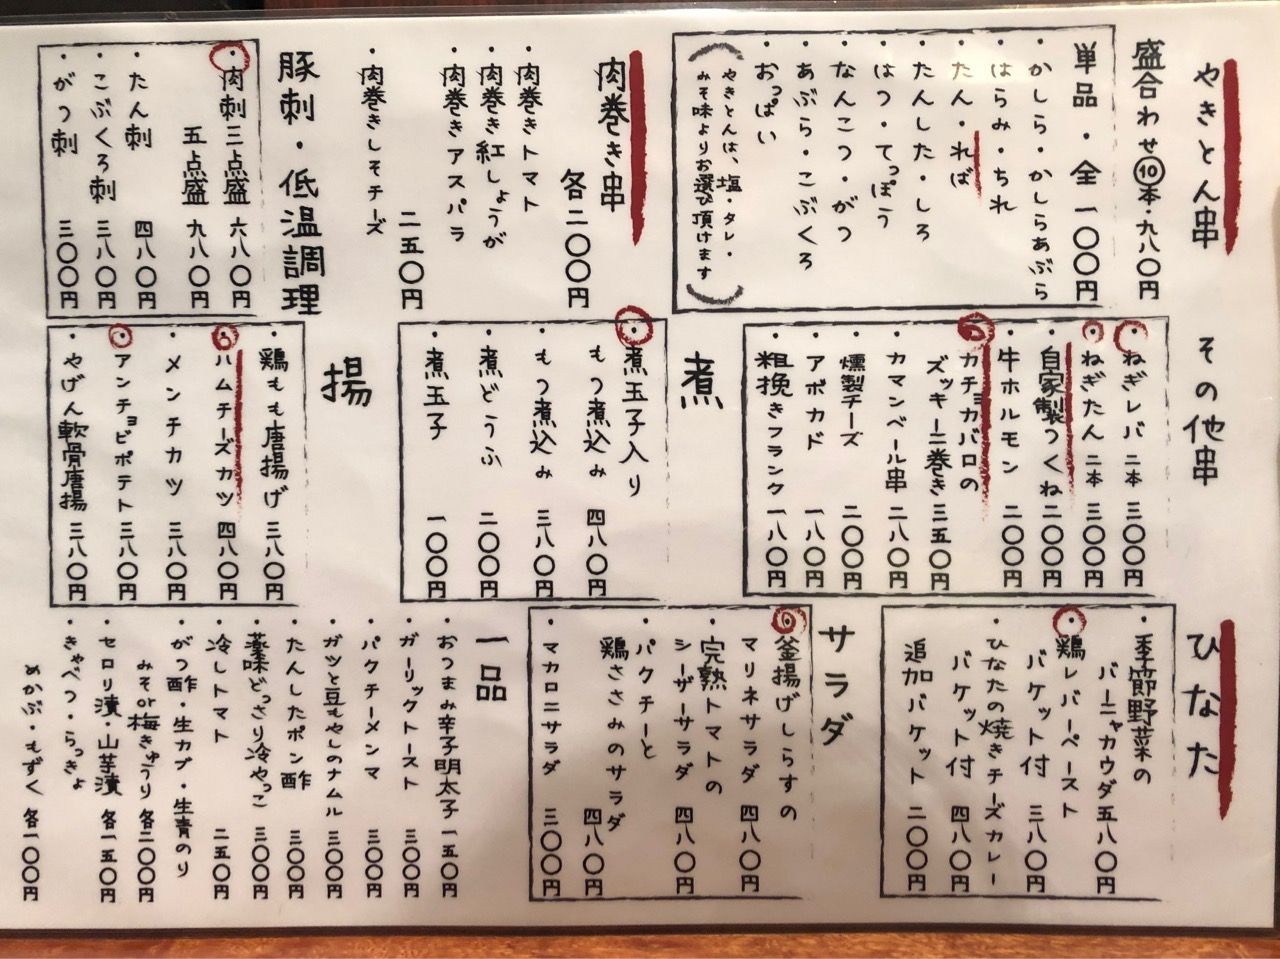 やきとん串
盛合わせ⑩本・九八〇円
単品・全一〇〇円
かしら・かしらあぶら
はらみ・ちれ
たん・れば
たんした・しろ
はつ・てっぽう
なんこつ・がつ
あぶら・こぶくろ
おっぱい
(やきとんは、塩・タレ・
みそ味よりお選び頂けます)
肉巻き串
各二〇〇円
・肉巻きトマト
・肉巻き紅しょうが
・肉巻きアスパラ
二五〇円
・肉巻きしそチーズ
豚刺・低温調理
・肉刺三点盛 六八〇円
五点盛 九八〇円
・たん刺 四八〇円
・こぶくろ刺 三八〇円
・がつ刺 三〇〇円
その他串
・ねぎレバ 二本 三〇〇円
・ねぎたん 二本 三〇〇円
・自家製つくね 二〇〇円
・牛ホルモン 二〇〇円
・カチョカバロの
ズッキーニ巻き 三五〇円
・カマンベール串 二八〇円
・燻製チーズ 二〇〇円
・アボカド 一八〇円
・粗挽きフランク 一八〇円
煮
・煮玉子入り
もつ煮込み 四八〇円
・もつ煮込み 三八〇円
・煮どうふ 二〇〇円
・煮玉子 一〇〇円
揚
・鶏もも唐揚げ 三八〇円
・ハムチーズカツ 四八〇円
・メンチカツ 三八〇円
・アンチョビポテト 三八〇円
・やげん軟骨唐揚 三八〇円
ひなた
・季節野菜の
バーニャカウダ 五八〇円
・鶏レバーペースト
バケット付 三八〇円
・ひなたの焼きチーズカレー
バケット付 四八〇円
・追加バケット 二〇〇円
サラダ
・釜揚げしらすの
マリネサラダ 四八〇円
・完熟トマトの
シーザーサラダ 四八〇円
・パクチーと
鶏ささみのサラダ 四八〇円
・マカロニサラダ 三〇〇円
一品
・おつまみ辛子明太子 一五〇円
・ガーリックトースト 三〇〇円
・パクチーメンマ 三〇〇円
・ガツと豆もやしのナムル 三〇〇円
・たんしたポン酢 三〇〇円
・薬味どっさり冷やっこ 三〇〇円
・冷しトマト 二五〇円
・がつ酢・生カブ・生青のり
みそor梅きゅうり 各二〇〇円
・セロリ漬・山芋漬 各一五〇円
・きゃべつ・らっきょ
めかぶ・もずく 各一〇〇円